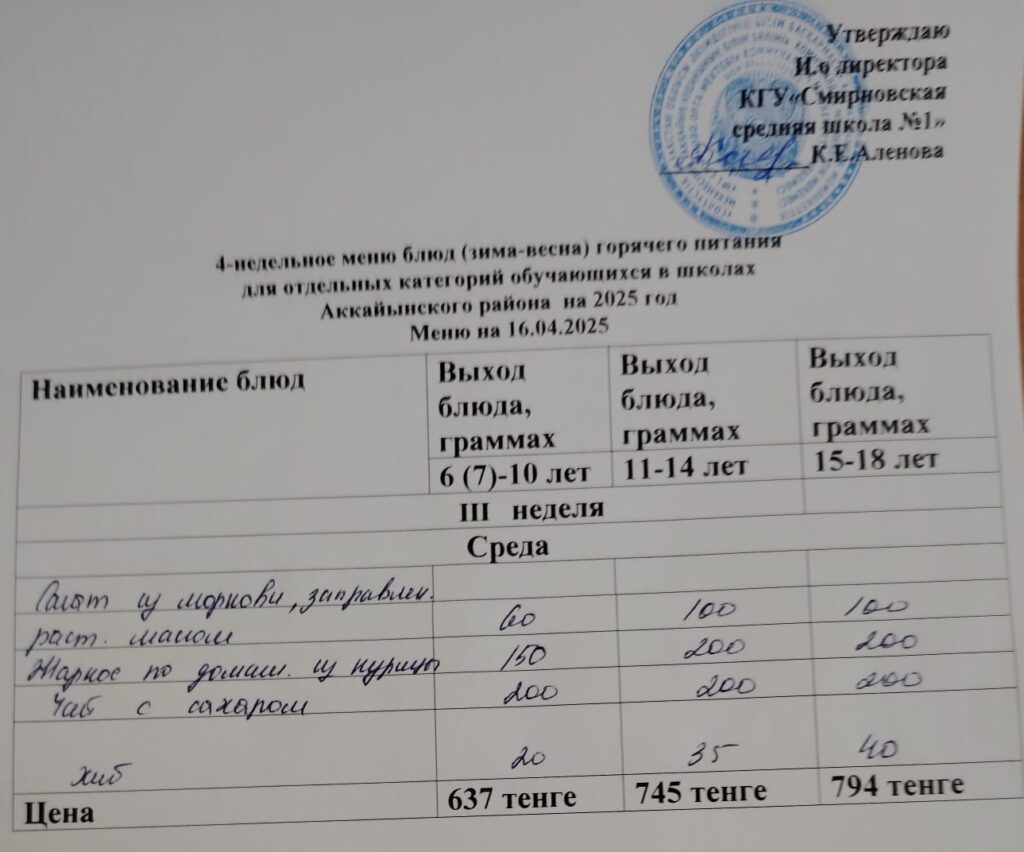 Утверждаю
И.о директора
КГУ«Смирновская
средняя школа №1»
К.Е.Аленова
4-недельное меню блюд (зима-весна) горячего питания
для отдельных категорий обучающихся в школах
Аккайынского района на 2025 год
Меню на 16.04.2025
Наименование блюд
Выход блюда, граммах
Выход блюда, граммах
Выход блюда, граммах
6 (7)-10 лет 11-14 лет 15-18 лет
III неделя
Среда
Салат из моркови, заправлен.
раст. маслом 60 100 100
Жаркое по домаш. из курицы 150 200 200
Чай с сахаром 200 200 200
хлеб 20 35 40
Цена 637 тенге 745 тенге 794 тенге